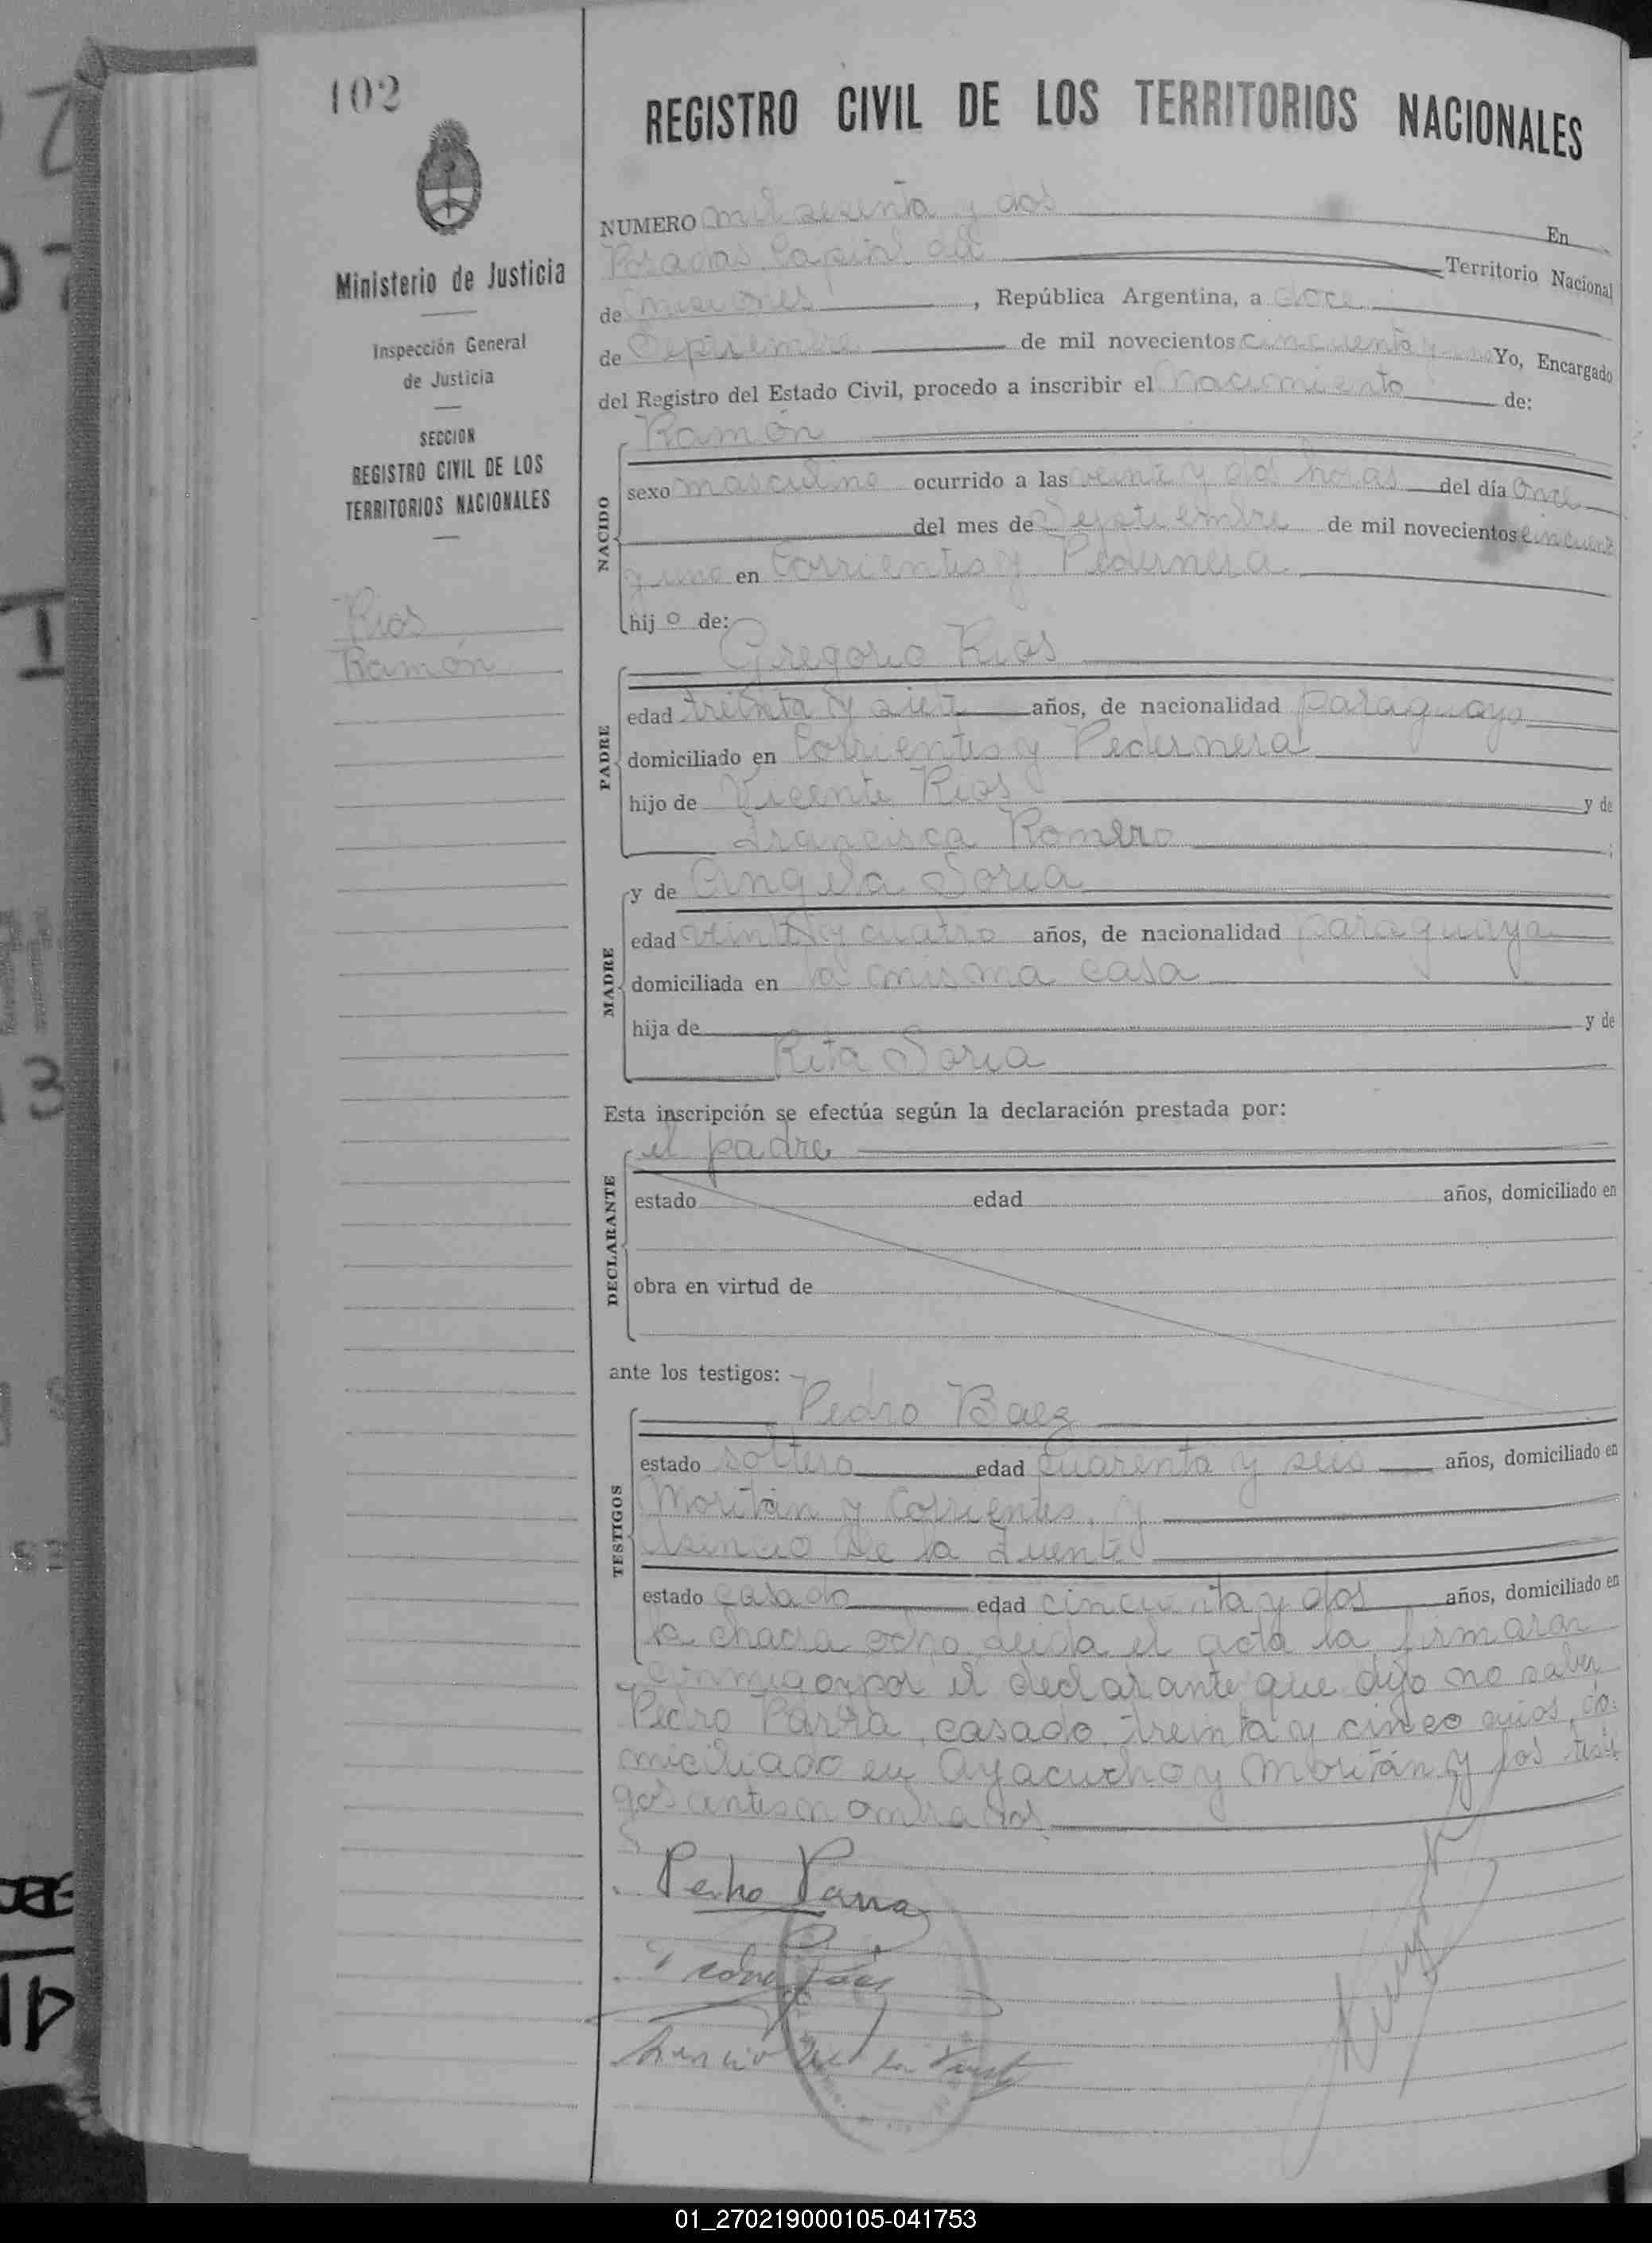 102
Ministerio de Justicia
Inspección General
de Justicia
SECCION
REGISTRO CIVIL DE LOS
TERRITORIOS NACIONALES
Rios
Ramón
REGISTRO CIVIL DE LOS TERRITORIOS NACIONALES
NUMERO mil sesenta y dos En
Posadas Capital del Territorio Nacional
de Misiones, República Argentina, a doce
de Septiembre de mil novecientos cincuenta y uno Yo, Encargado
del Registro del Estado Civil, procedo a inscribir el nacimiento de:
NACIDO
Ramón
sexo masculino ocurrido a las veinte y dos horas del día once
del mes de Septiembre de mil novecientos cincuenta
y uno en Corrientes y Pedernera
hijo de:
PADRE
Gregorio Rios
edad treinta y siete años, de nacionalidad paraguayo
domiciliado en Corrientes y Pedernera
hijo de Vicente Rios y de
Francisca Romero
MADRE
y de Angela Soria
edad veinte y cuatro años, de nacionalidad paraguaya
domiciliada en la misma casa
hija de y de
Rita Soria
Esta inscripción se efectúa según la declaración prestada por:
DECLARANTE
el padre
estado edad años, domiciliado en
obra en virtud de
ante los testigos:
TESTIGOS
Pedro Baez
estado soltero edad cuarenta y seis años, domiciliado en
Moritán y Corrientes, y
Asencio De la Fuente
estado casado edad cincuenta y dos años, domiciliado en
la chacra ocho. Leida el acta la firmaran
conmigo, por el declarante que dijo no saber
Pedro Parra, casado, treinta y cinco años, do-
miciliado en Ayacucho y Moritán y los testi
gos antes nombrados
Pedro Parra
Asencio de la Fuente
01_270219000105-041753